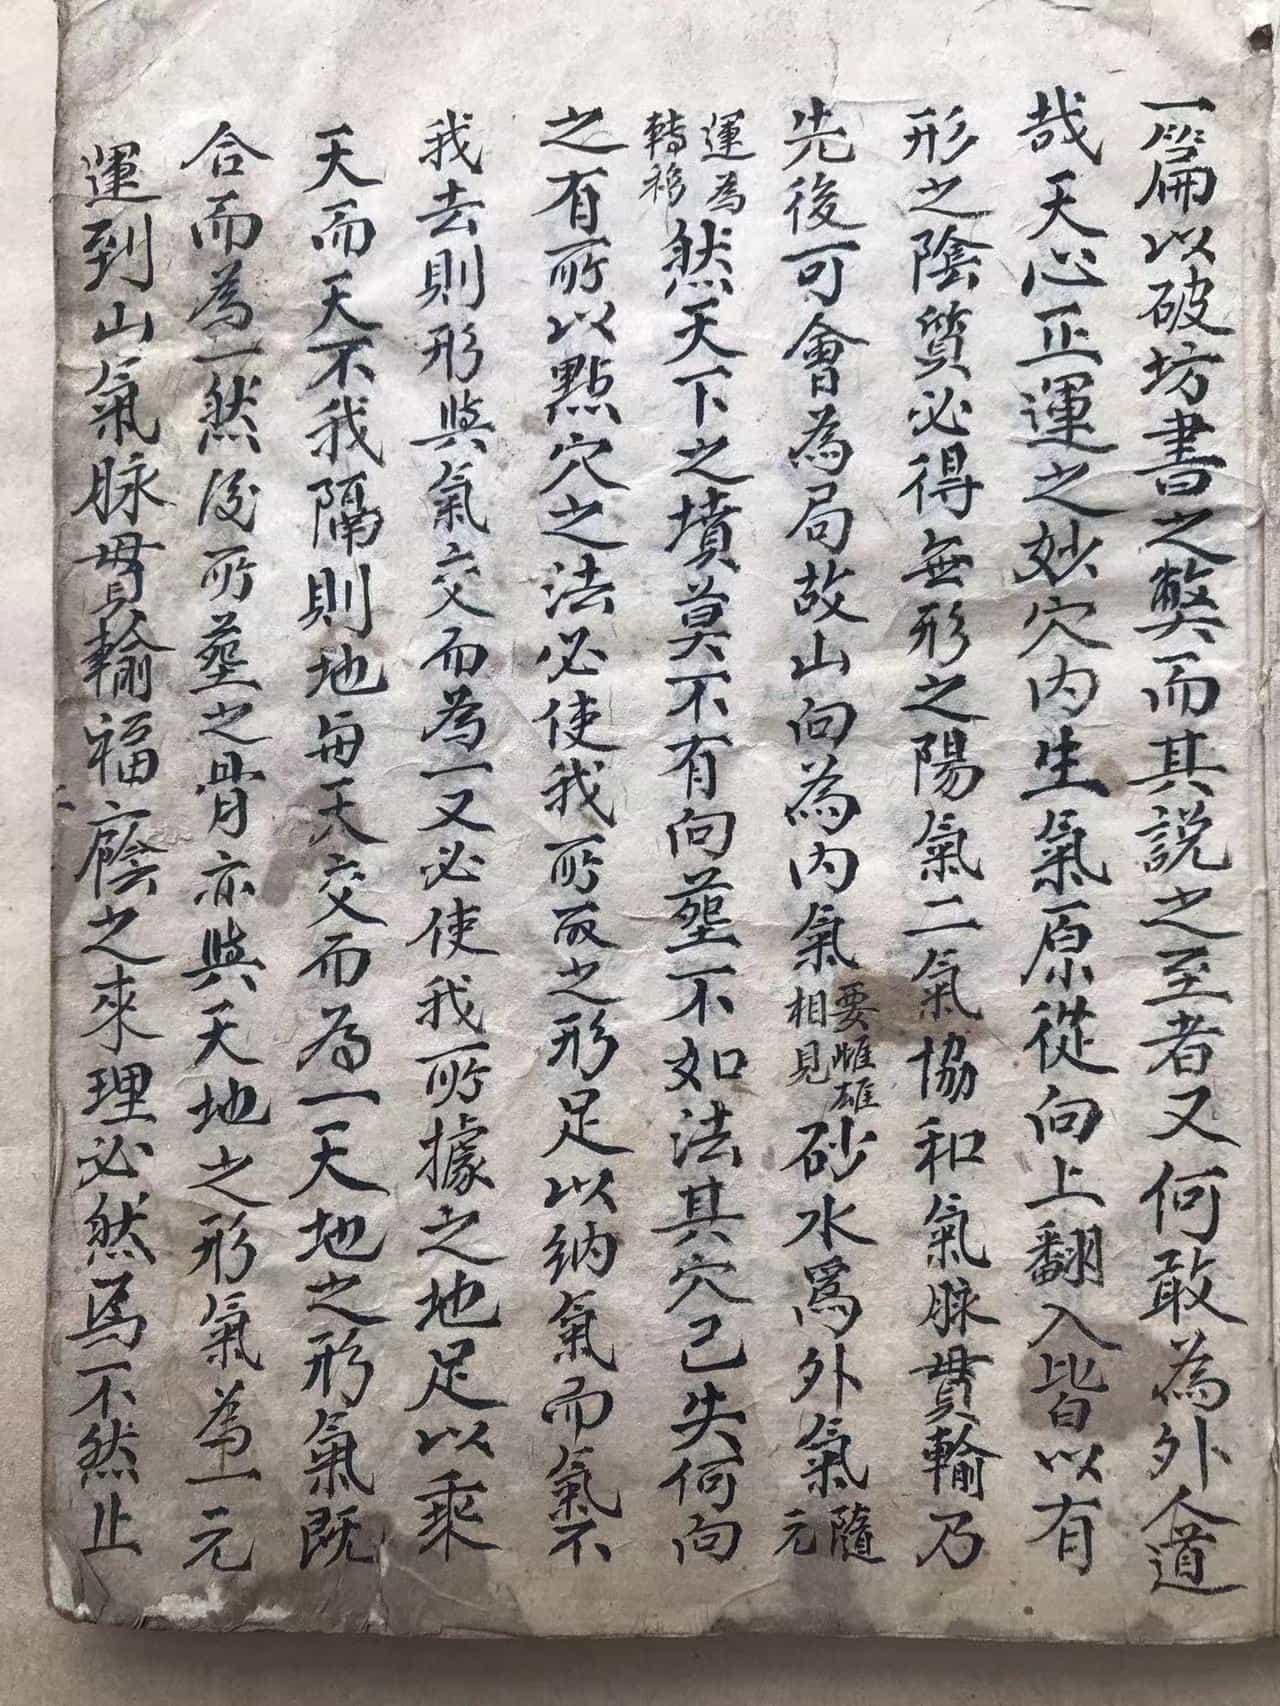 一篇以破坊書之弊而其説之至者又何敢為外人道
哉天心正運之妙穴内生氣原從向上翻入皆以有
形之陰質必得無形之陽氣二氣協和氣脉貫輸乃
先後可會為局故山向為内氣要雌雄相見砂水爲外氣隨元
運為轉移然天下之墳莫不有向塟不如法其穴已失何向
之有所以點穴之法必使我所取之形足以納氣而氣不
我去則形與氣交而為一又必使我所據之地足以乘
天而天不我隔則地每天交而為一天地之形氣既
合而為一然後所塟之骨亦與天地之形氣為一元
運到山氣脉貫輸福廕之來理必然焉不然止